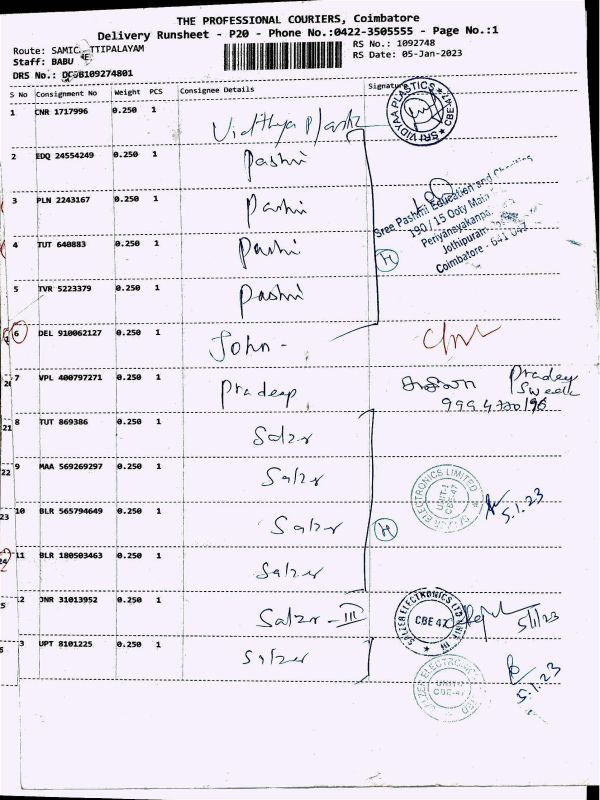 THE PROFESSIONAL COURIERS, Coimbatore
Delivery Runsheet - P20 - Phone No.:0422-3505555 - Page No.:1
Route: SAMIC TTIPALAYAM
RS No.: 1092748
Staff: BABU
RS Date: 05-Jan-2023
DRS No.:
S No Consignment No Weight PCS Consignee Details Signature
1 CNR 1717996 0.250 1 Vidthya Plastz
SRI VIDYAA PLASTICS CBE-47
2 EDQ 24554249 0.250 1 Pashri
3 PLN 2243167 0.250 1 Pashri
Sree Pashmi Education and
190/15 Ooty Main
4 TUT 640883 0.250 1 Pashri
Periyanayakanpa
Jothipuram
Coimbatore - 641 047
5 TVR 5223379 0.250 1 Pashri
6 DEL 910062127 0.250 1 John -
7 VPL 400797271 0.250 1 Pradeep
Pradeep
Sweets
21 8 TUT 869386 0.250 1 Salzer
22 9 MAA 569269297 0.250 1 Salzer
ELECTRONICS LIMITED UNIT-1 CBE-47
5.1.23
23 10 BLR 565794649 0.250 1 Salzer
11 BLR 180503463 0.250 1 Salzer
2 JNR 31013952 0.250 1 Salzer - III
SALZER ELECTRONICS LTD UNIT III CBE 47
5/1/23
3 UPT 8101225 0.250 1 Salzer
SALZER ELECTRONICS LIMITED UNIT-1 CBE-47
5.1.23